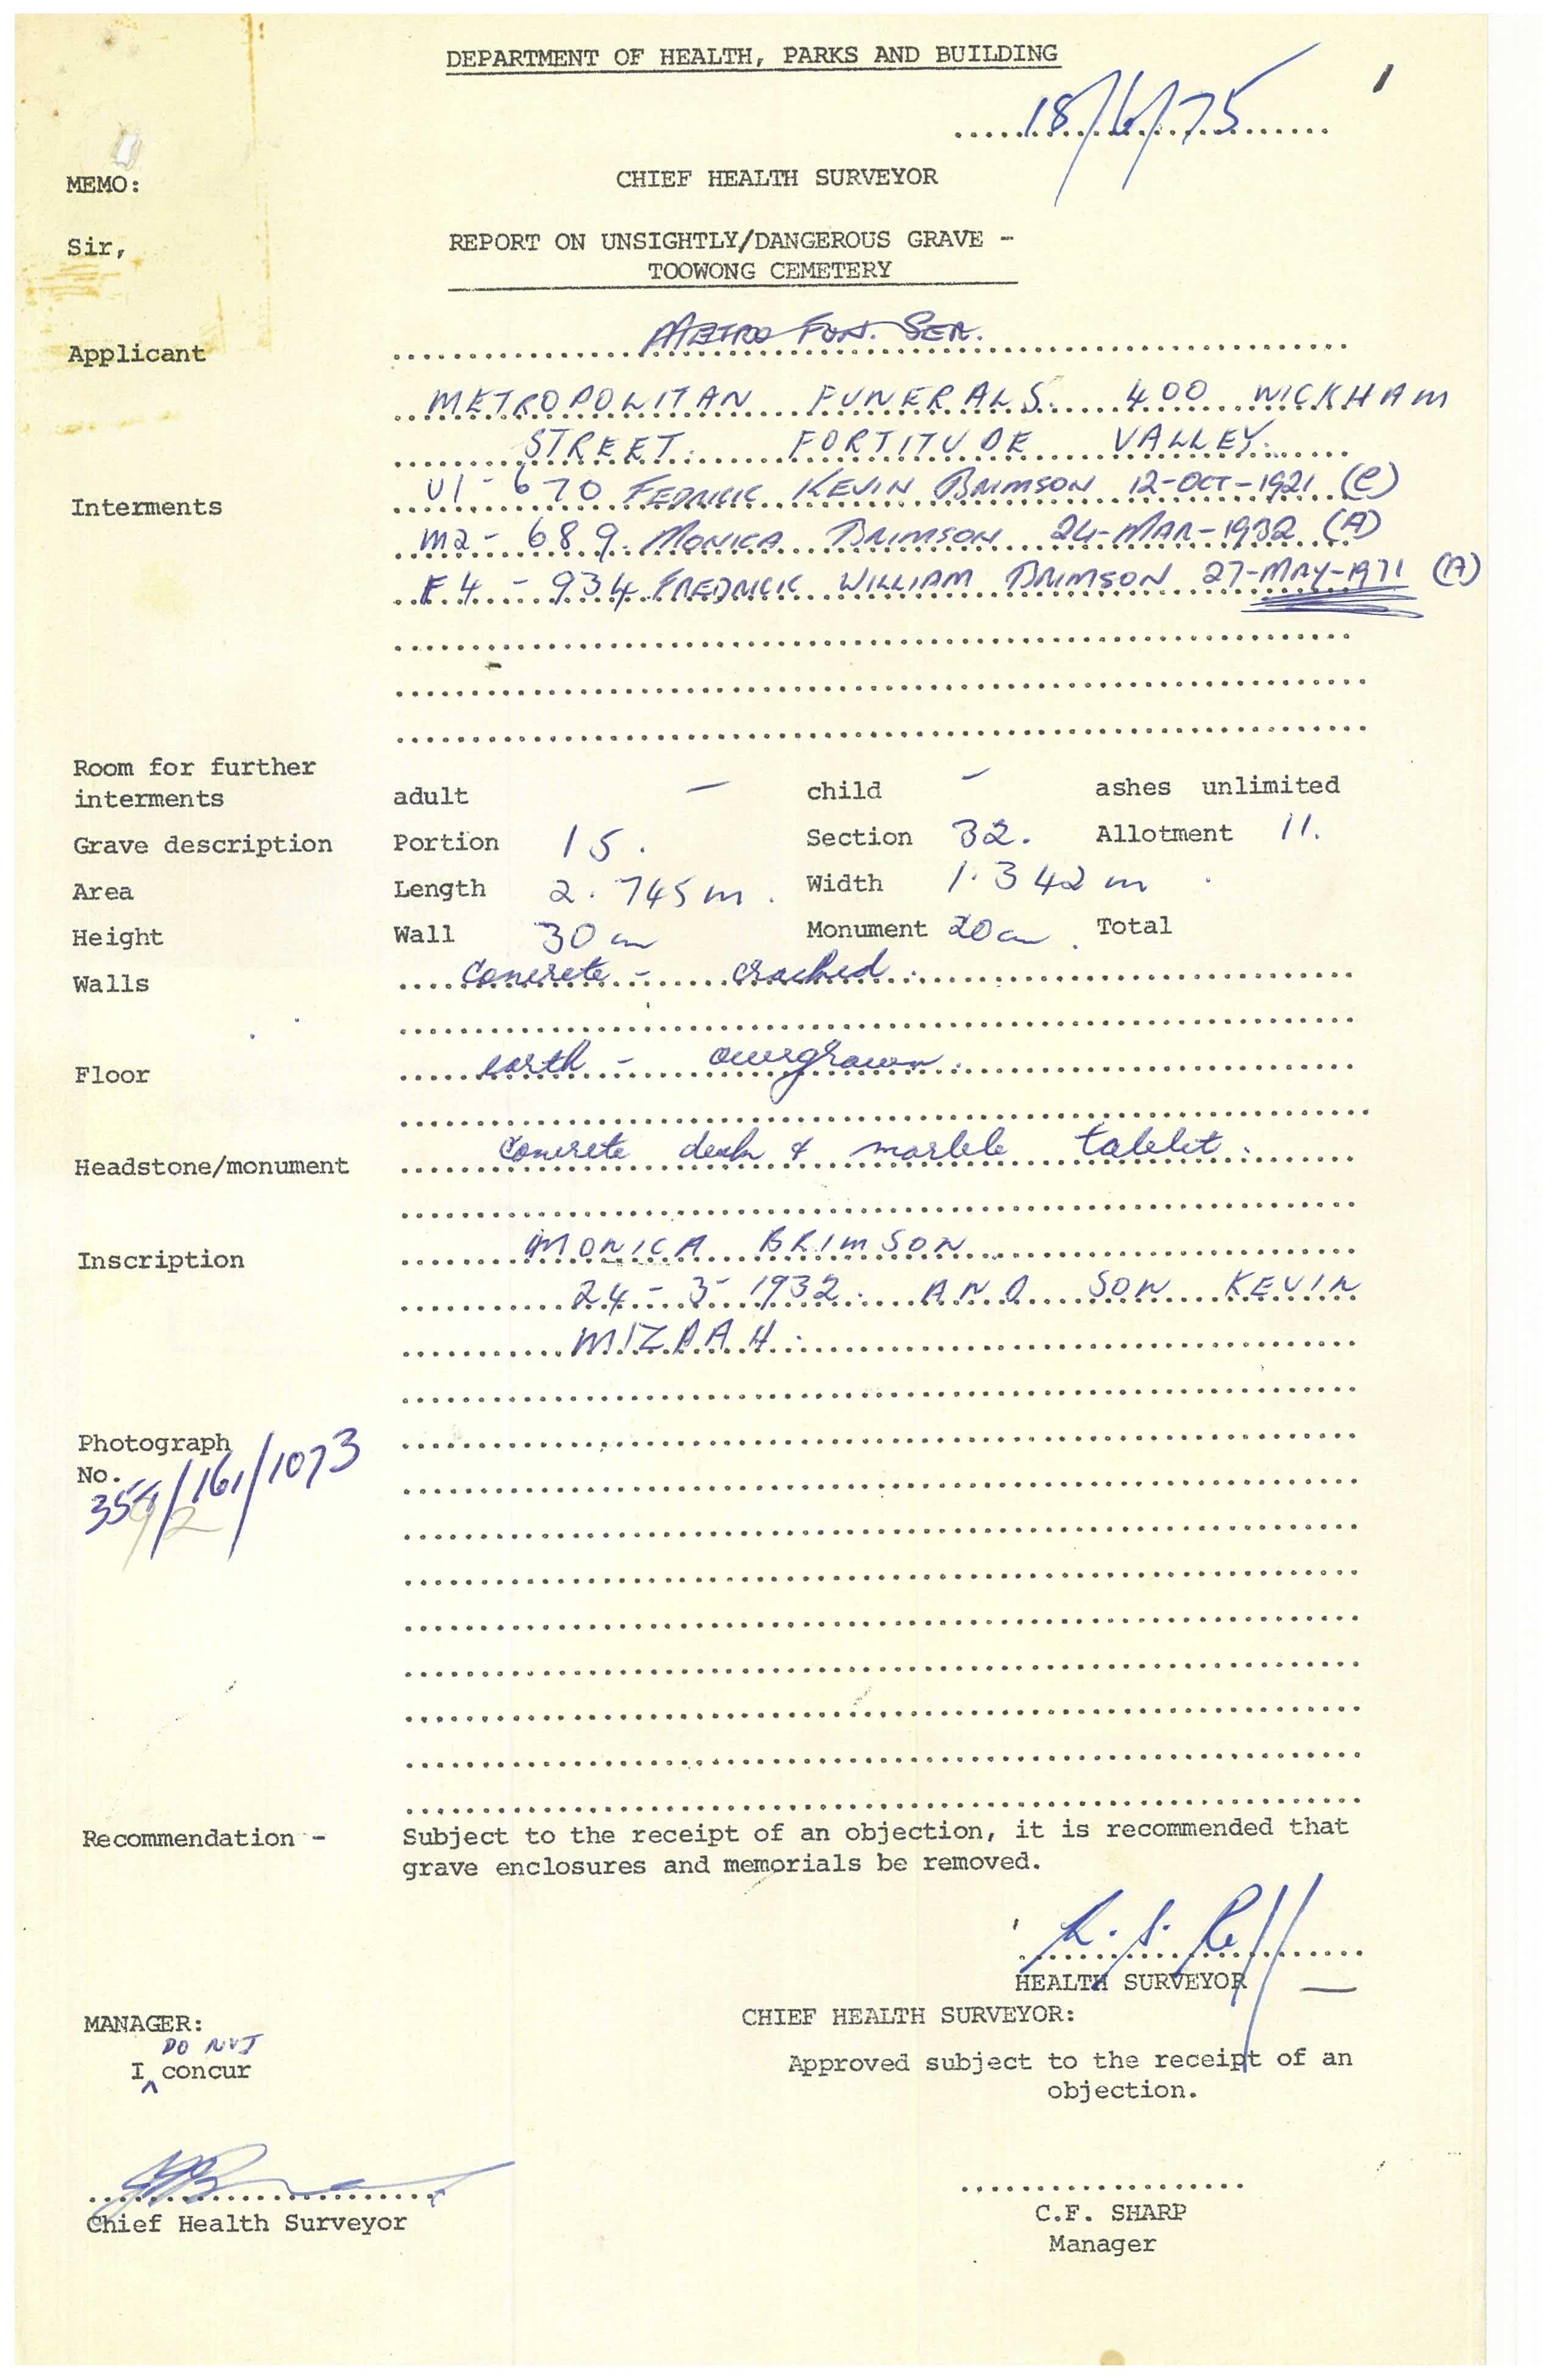 DEPARTMENT OF HEALTH, PARKS AND BUILDING
18/6/75
MEMO: CHIEF HEALTH SURVEYOR
Sir, REPORT ON UNSIGHTLY/DANGEROUS GRAVE -
TOOWONG CEMETERY
Applicant METRO FUN. SER.
METROPOLITAN FUNERALS. 400 WICKHAM
STREET. FORTITUDE VALLEY.
Interments U1-670 FEDRICK KEVIN BRIMSON 12-OCT-1921 (C)
M2-689. MONICA BRIMSON 24-MAR-1932 (A)
F4-934 FREDRICK WILLIAM BRIMSON 27-MAY-1971 (A)
Room for further
interments adult - child - ashes unlimited
Grave description Portion 15. Section 32. Allotment 11.
Area Length 2.745m. Width 1.342m
Height Wall 30cm Monument 20cm. Total
Walls concrete - cracked.
Floor earth - overgrown.
Headstone/monument concrete desk & marble tablet.
Inscription MONICA BRIMSON
24-3-1932. AND SON KEVIN
MIZPAH.
Photograph
No.
/161/1073
Recommendation - Subject to the receipt of an objection, it is recommended that
grave enclosures and memorials be removed.
HEALTH SURVEYOR
MANAGER: CHIEF HEALTH SURVEYOR:
DO NOT
I concur Approved subject to the receipt of an
objection.
Chief Health Surveyor C.F. SHARP
Manager